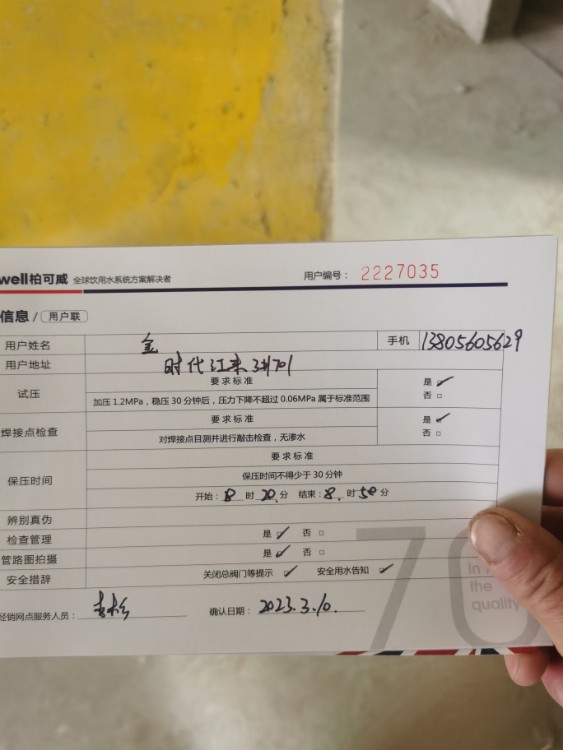 well柏可威 全球饮用水系统方案解决者 用户编号： 2227035
信息 / 用户联
用户姓名 金 手机 13805605629
用户地址 时代江来
试压 要求标准 是 ✓
加压 1.2MPa，稳压 30 分钟后，压力下降不超过 0.06MPa 属于标准范围 否 □
焊接点检查 要求标准 是 ✓
对焊接点目测并进行敲击检查，无渗水 否 □
保压时间 要求标准
保压时间不得少于 30 分钟
开始：8 时 20 分 结束：8 时 50 分
辨别真伪
检查管理 是 ✓ 否 □
管路图拍摄 是 ✓ 否 □
安全措辞 关闭总阀门等提示 ✓ 安全用水告知 ✓
经销网点服务人员： 确认日期： 2023.3.10.
70
in
the
quality